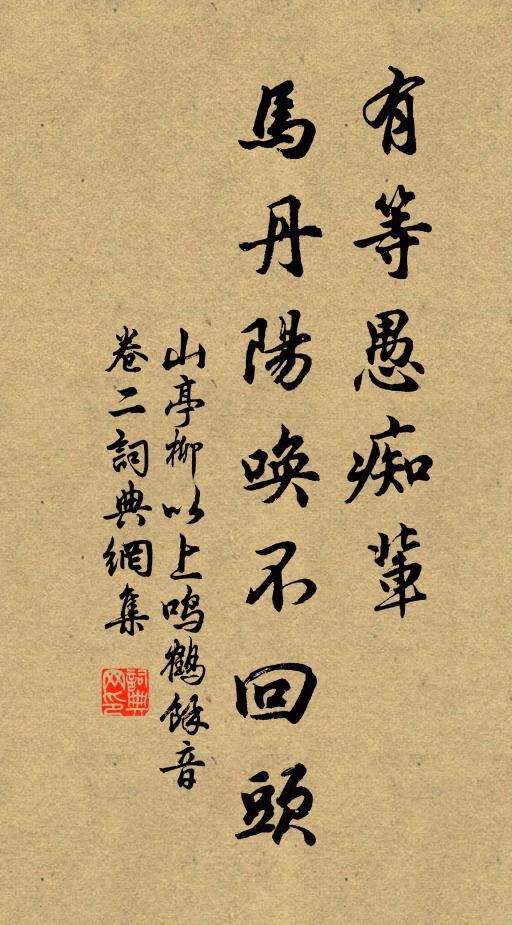 有等愚痴輩
馬丹陽喚不回頭
山亭柳以上鳴鶴餘音
卷二詞典網集
詞典网印